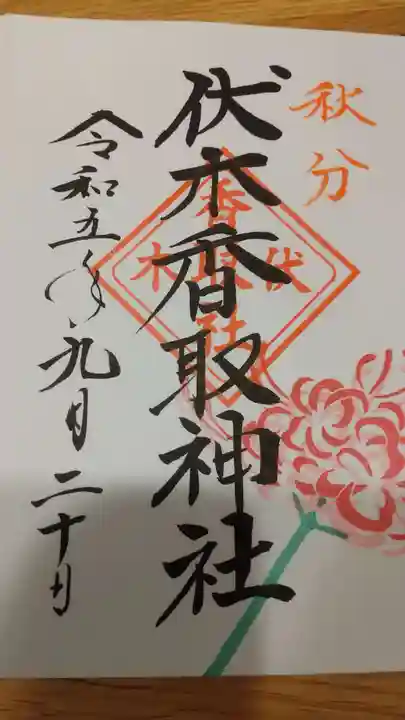 秋分
伏木香取神社
伏木
香取社
令和五年九月二十日